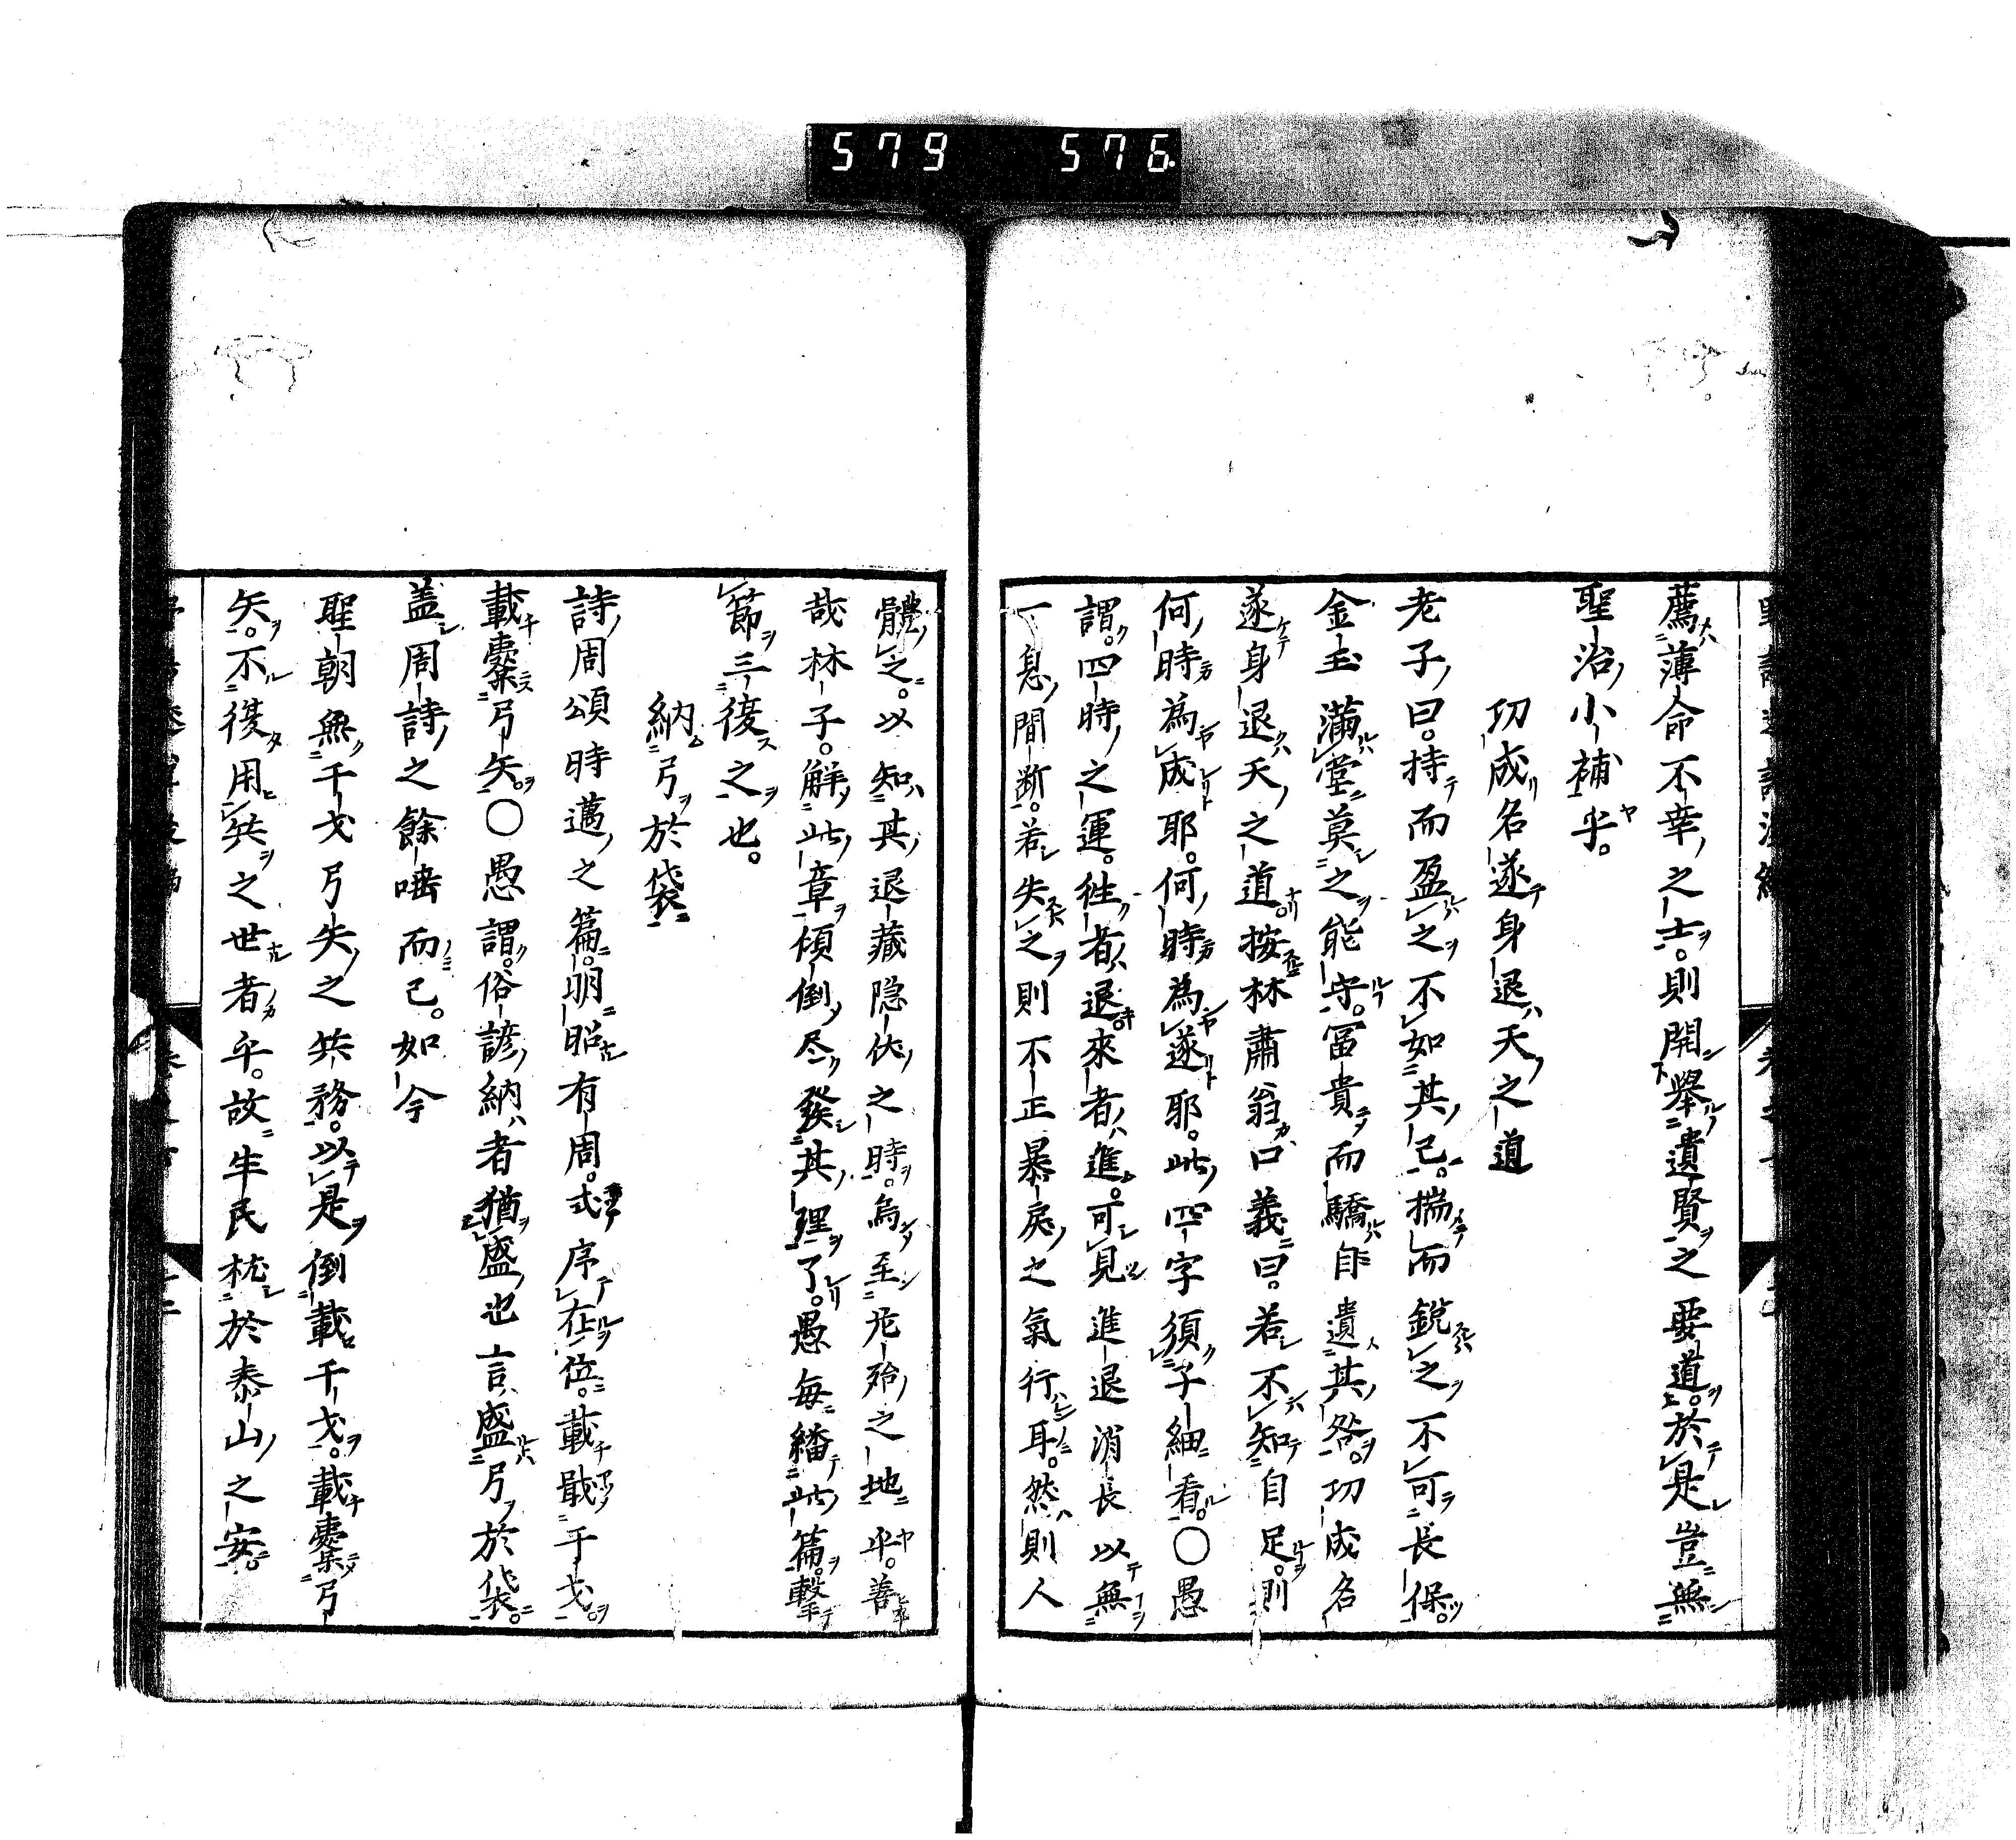 579 576
薦薄命不幸之士。則開擧遺賢之要道。於是豈無
聖治小補乎。
功成名遂身退天之道
老子曰。持而盈之不如其已。揣而銳之不可長保。
金玉滿堂莫之能守。冨貴而驕自遺其咎。功成名
遂身退天之道。按林肅翁口義曰。若不知自足。則
何時為成耶。何時為遂耶。此四字須子細看。〇愚
謂。四時之運。徃者退來者進。可見進退消長以無
一息間断。若失之則不正暴戻之氣行耳。然則人
體之。以知其退藏隐伏之時。為至危殆之地乎。善
哉林子。解此章傾倒尽發其理了。愚每繙此篇。擊
節三復之也。
納弓於袋
詩周頌時邁之篇。明昭有周。式序在位。載戢干戈。
載櫜弓矢。〇愚謂。俗諺納者猶盛也言盛弓於袋。
盖周詩之餘唾而已。如今
聖朝無干戈弓矢之兵務。以是倒載干戈。載櫜弓
矢。不復用兵之世者乎。故生民枕於泰山之安。